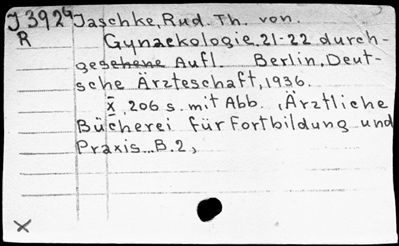 J392⁶ Jaschke, Rud. Th. von.
R Gynaekologie. 21-22 durch-
gesehene Aufl. Berlin, Deut-
sche Ärzteschaft, 1936.
x̄, 206 s. mit Abb. (Ärztliche
Bücherei für Fortbildung und
Praxis... B. 2,
X